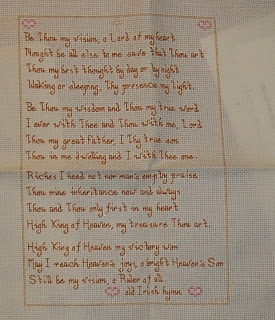 Be Thou my vision, o Lord of my heart
Nought be all else to me save that Thou art
Thou my best thought by day or by night
Waking or sleeping, Thy presence my light.
Be Thou my wisdom and Thou my true word
I ever with Thee and Thou with me, Lord
Thou my great father, I Thy true son
Thou in me dwelling and I with Thee one.
Riches I heed not nor man's empty praise
Thou mine inheritance now and always
Thou and Thou only first in my heart
High King of Heaven, my treasure Thou art.
High King of Heaven my victory won
May I reach Heaven's joys, o bright Heaven's Son
Still be my vision, o Ruler of all.
old Irish hymn